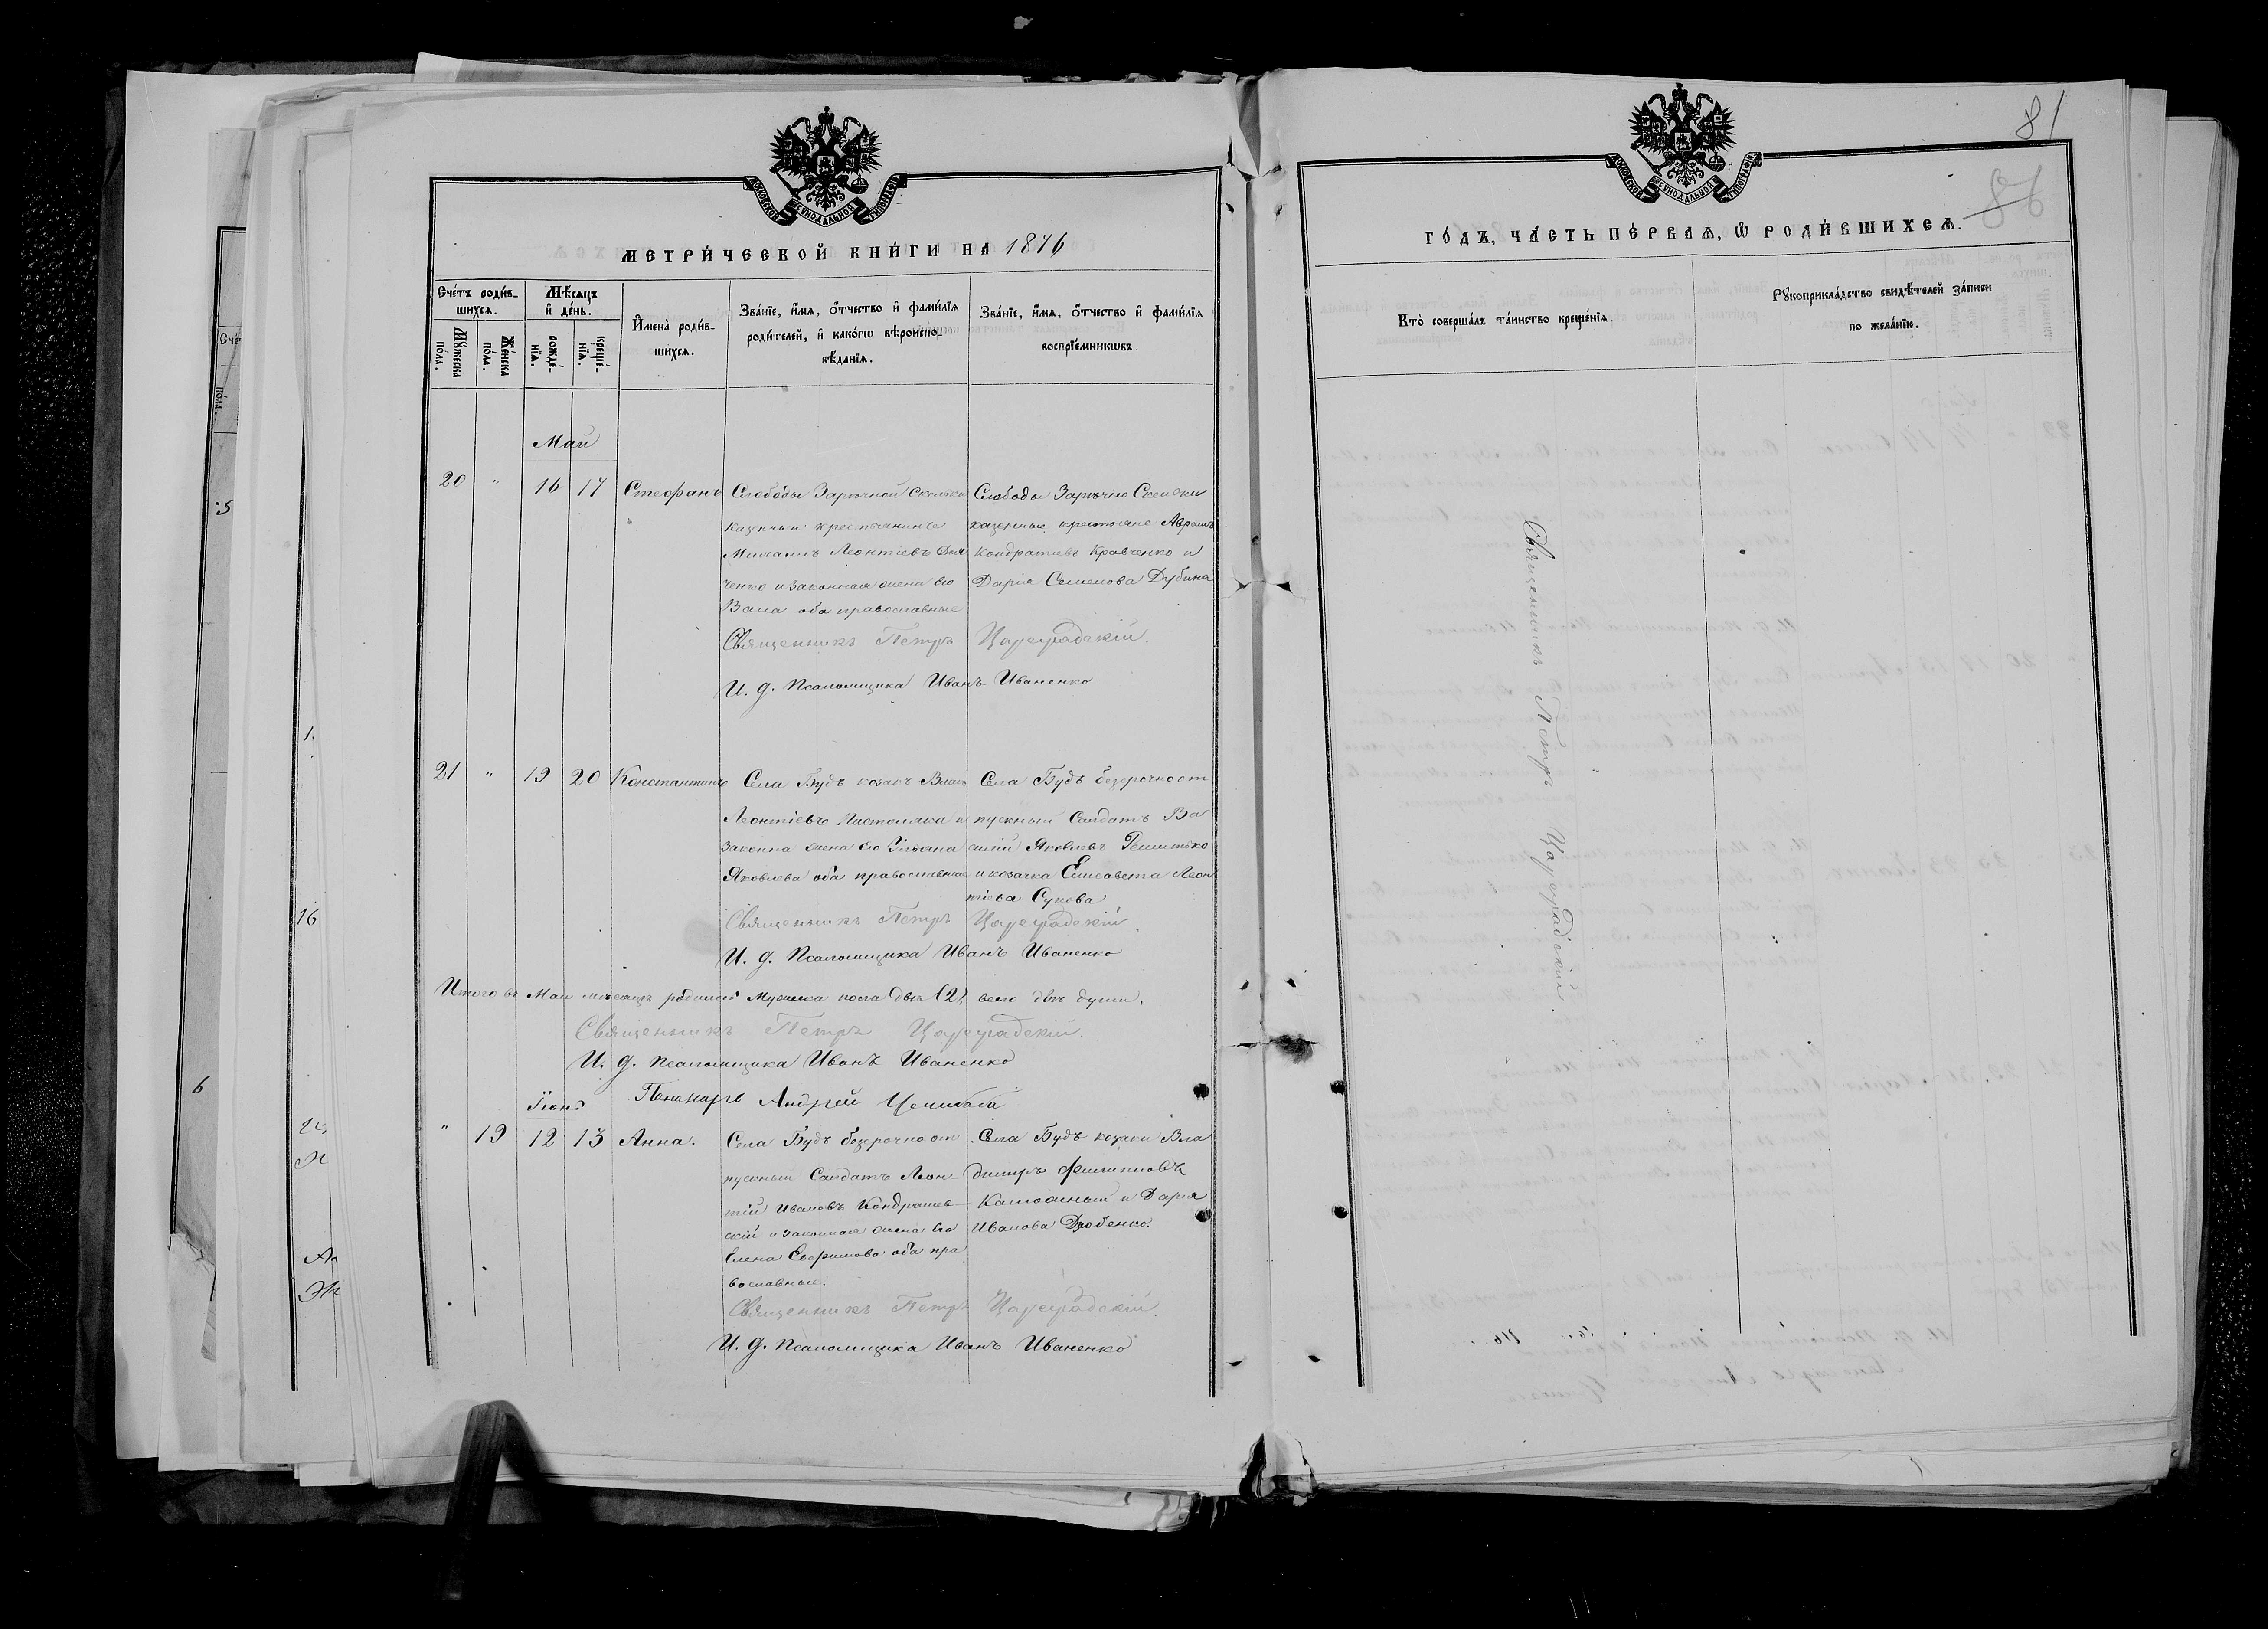 81
86
МОСКОВСКОЙ СѴНОДАЛЬНОЙ ТИПОГРАФІИ
МЕТРИ́ЧЕСКОЙ КНИ́ГИ НА 1876
Сче́тъ роди́вшихсѧ.
Мꙋ́жеска по́ла.
Же́нска по́ла.
Мѣ́сѧцъ и҆ де́нь.
рожде́нїѧ.
креще́нїѧ.
И҆мена̀ роди́вшихсѧ.
Зва́нїе, и҆́мѧ, ѻ҆́тчество и҆ фами́лїѧ
роди́телей, и҆ како́гѡ вѣроиспо-
вѣ́данїѧ.
Зва́нїе, и҆́мѧ, ѻ҆́тчество и҆ фами́лїѧ
воспрїе́мникѡвъ.
Май
20 " 16 17 Стефанъ
Слободы Заречной
казенный крестьянинъ
Михаилъ Леонтіевъ
ченко и законная жена его
оба православные
Слободы Заречно
казенные крестьяне
Кондратіевъ Кравченко и
Дарія Семенова Дубина
Священникъ Петръ Цареградскій.
И. д. Псаломщика Иванъ Иваненко
21 " 19 20 Константинъ
Села Будъ козакъ
Леонтіевъ и
законна жена его Ульяна
Яковлева оба православные
Села Будъ безсрочноот
пускный Солдатъ Ва
силій Яковлевъ
и козачка Елисавета Леон
тіева Сукова
Священникъ Петръ Цареградскій.
И. д. Псаломщика Иванъ Иваненко
Итого въ Маи месяцѣ родилось Мужеска пола два (2) всего двѣ души.
Священникъ Петръ Цареградскій.
И. д. Псаломщика Иванъ Иваненко
Понамарь Андрей
Іюнь
" 19 12 13 Анна.
Села Будъ безсрочноот
пускный Солдатъ Леон
тій Ивановъ Кондрашев
скій и законная жена его
Елена Ефримова оба пра
вославные.
Села Будъ козаки Вла
диміръ Филиповъ
и Дарія
Иванова Дробенко.
Священникъ Петръ Цареградскій.
И. д. Псаломщика Иванъ Иваненко
МОСКОВСКОЙ СѴНОДАЛЬНОЙ ТИПОГРАФІИ
ГО́ДЪ, ЧА́СТЬ ПЕ́РВАѦ, Ѡ҆ РОДИ́ВШИХСѦ.
Кто̀ соверша́лъ та́инство креще́нїѧ.
Рꙋкоприкла́дство свидѣ́телей за́писи
по жела́нїю.
Священникъ Петръ Цареградскій.